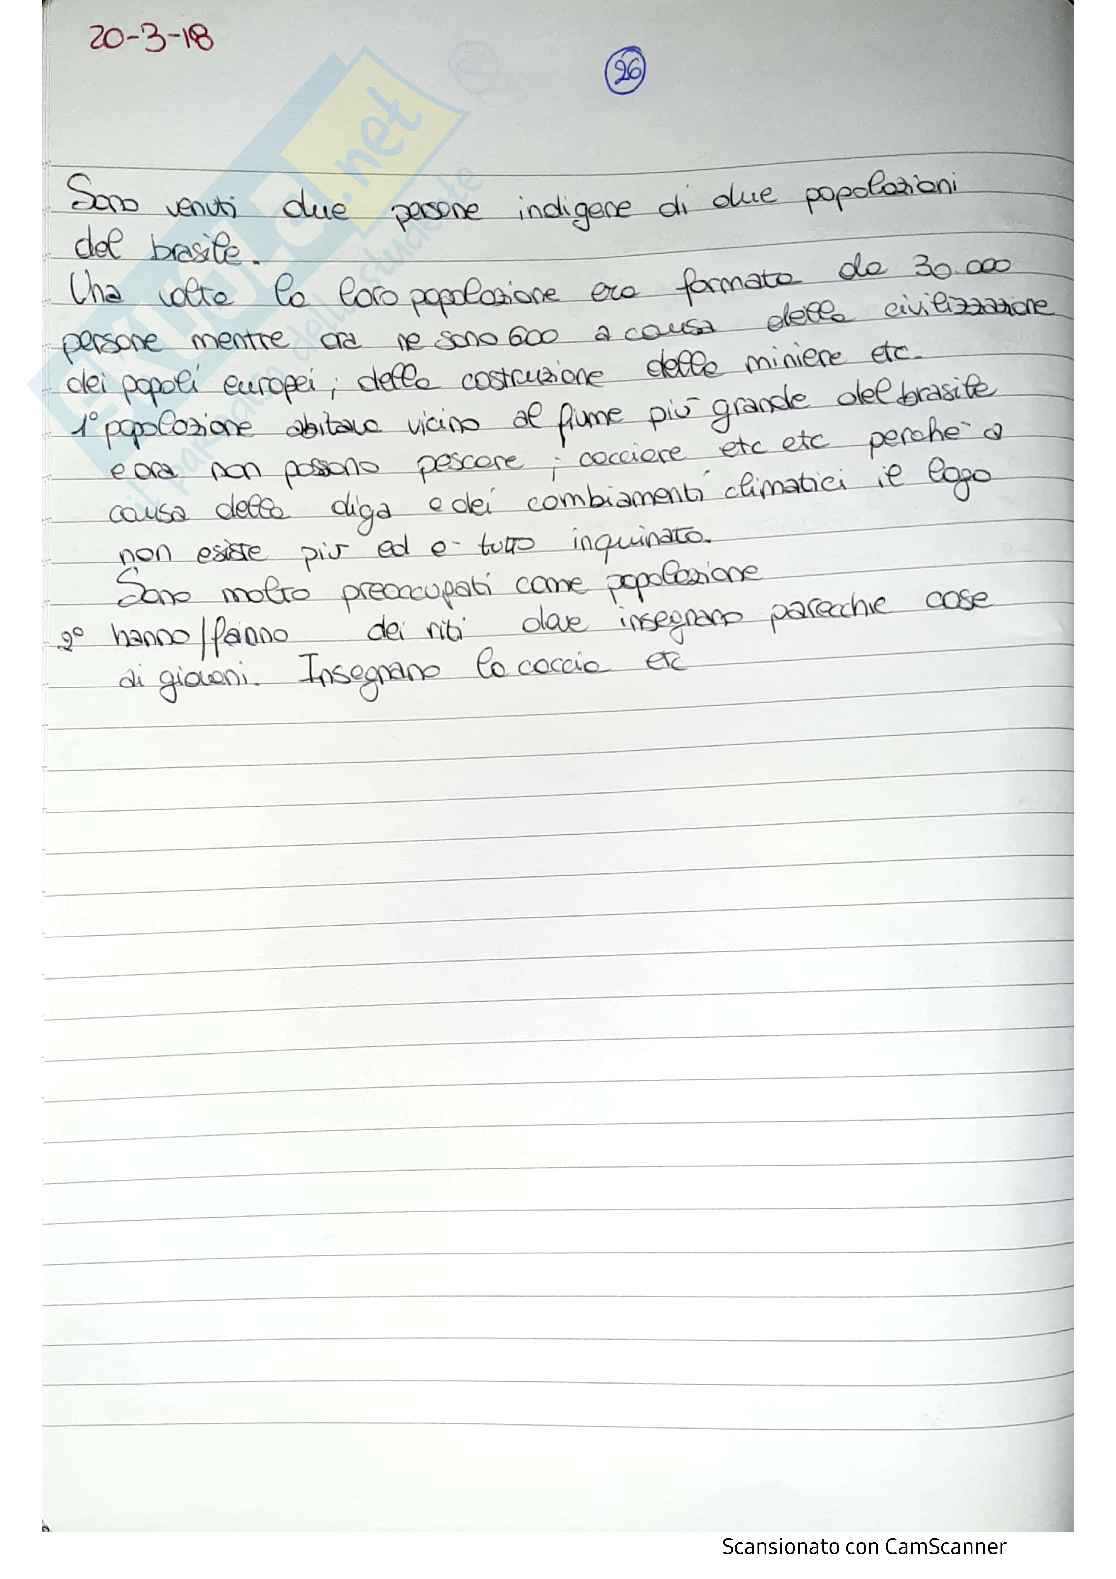 20-3-18
26
Sono venuti due persone indigene di due popolazioni
del brasile.
Una volta la loro popolazione era formata da 30.000
persone mentre ora ne sono 600 a causa della civilizzazione
dei popoli europei, della costruzione delle miniere etc.
1° popolazione abitava vicino al fiume più grande del brasile
e ora non possono pescare, cacciare etc etc perché a
causa della diga e dei cambiamenti climatici il lago
non esiste più ed è tutto inquinato.
Sono molto preoccupati come popolazione
2° hanno/fanno dei riti dove insegnano parecchie cose
ai giovani. Insegnano la caccia etc
.net
il paradiso dello studente
Scansionato con CamScanner